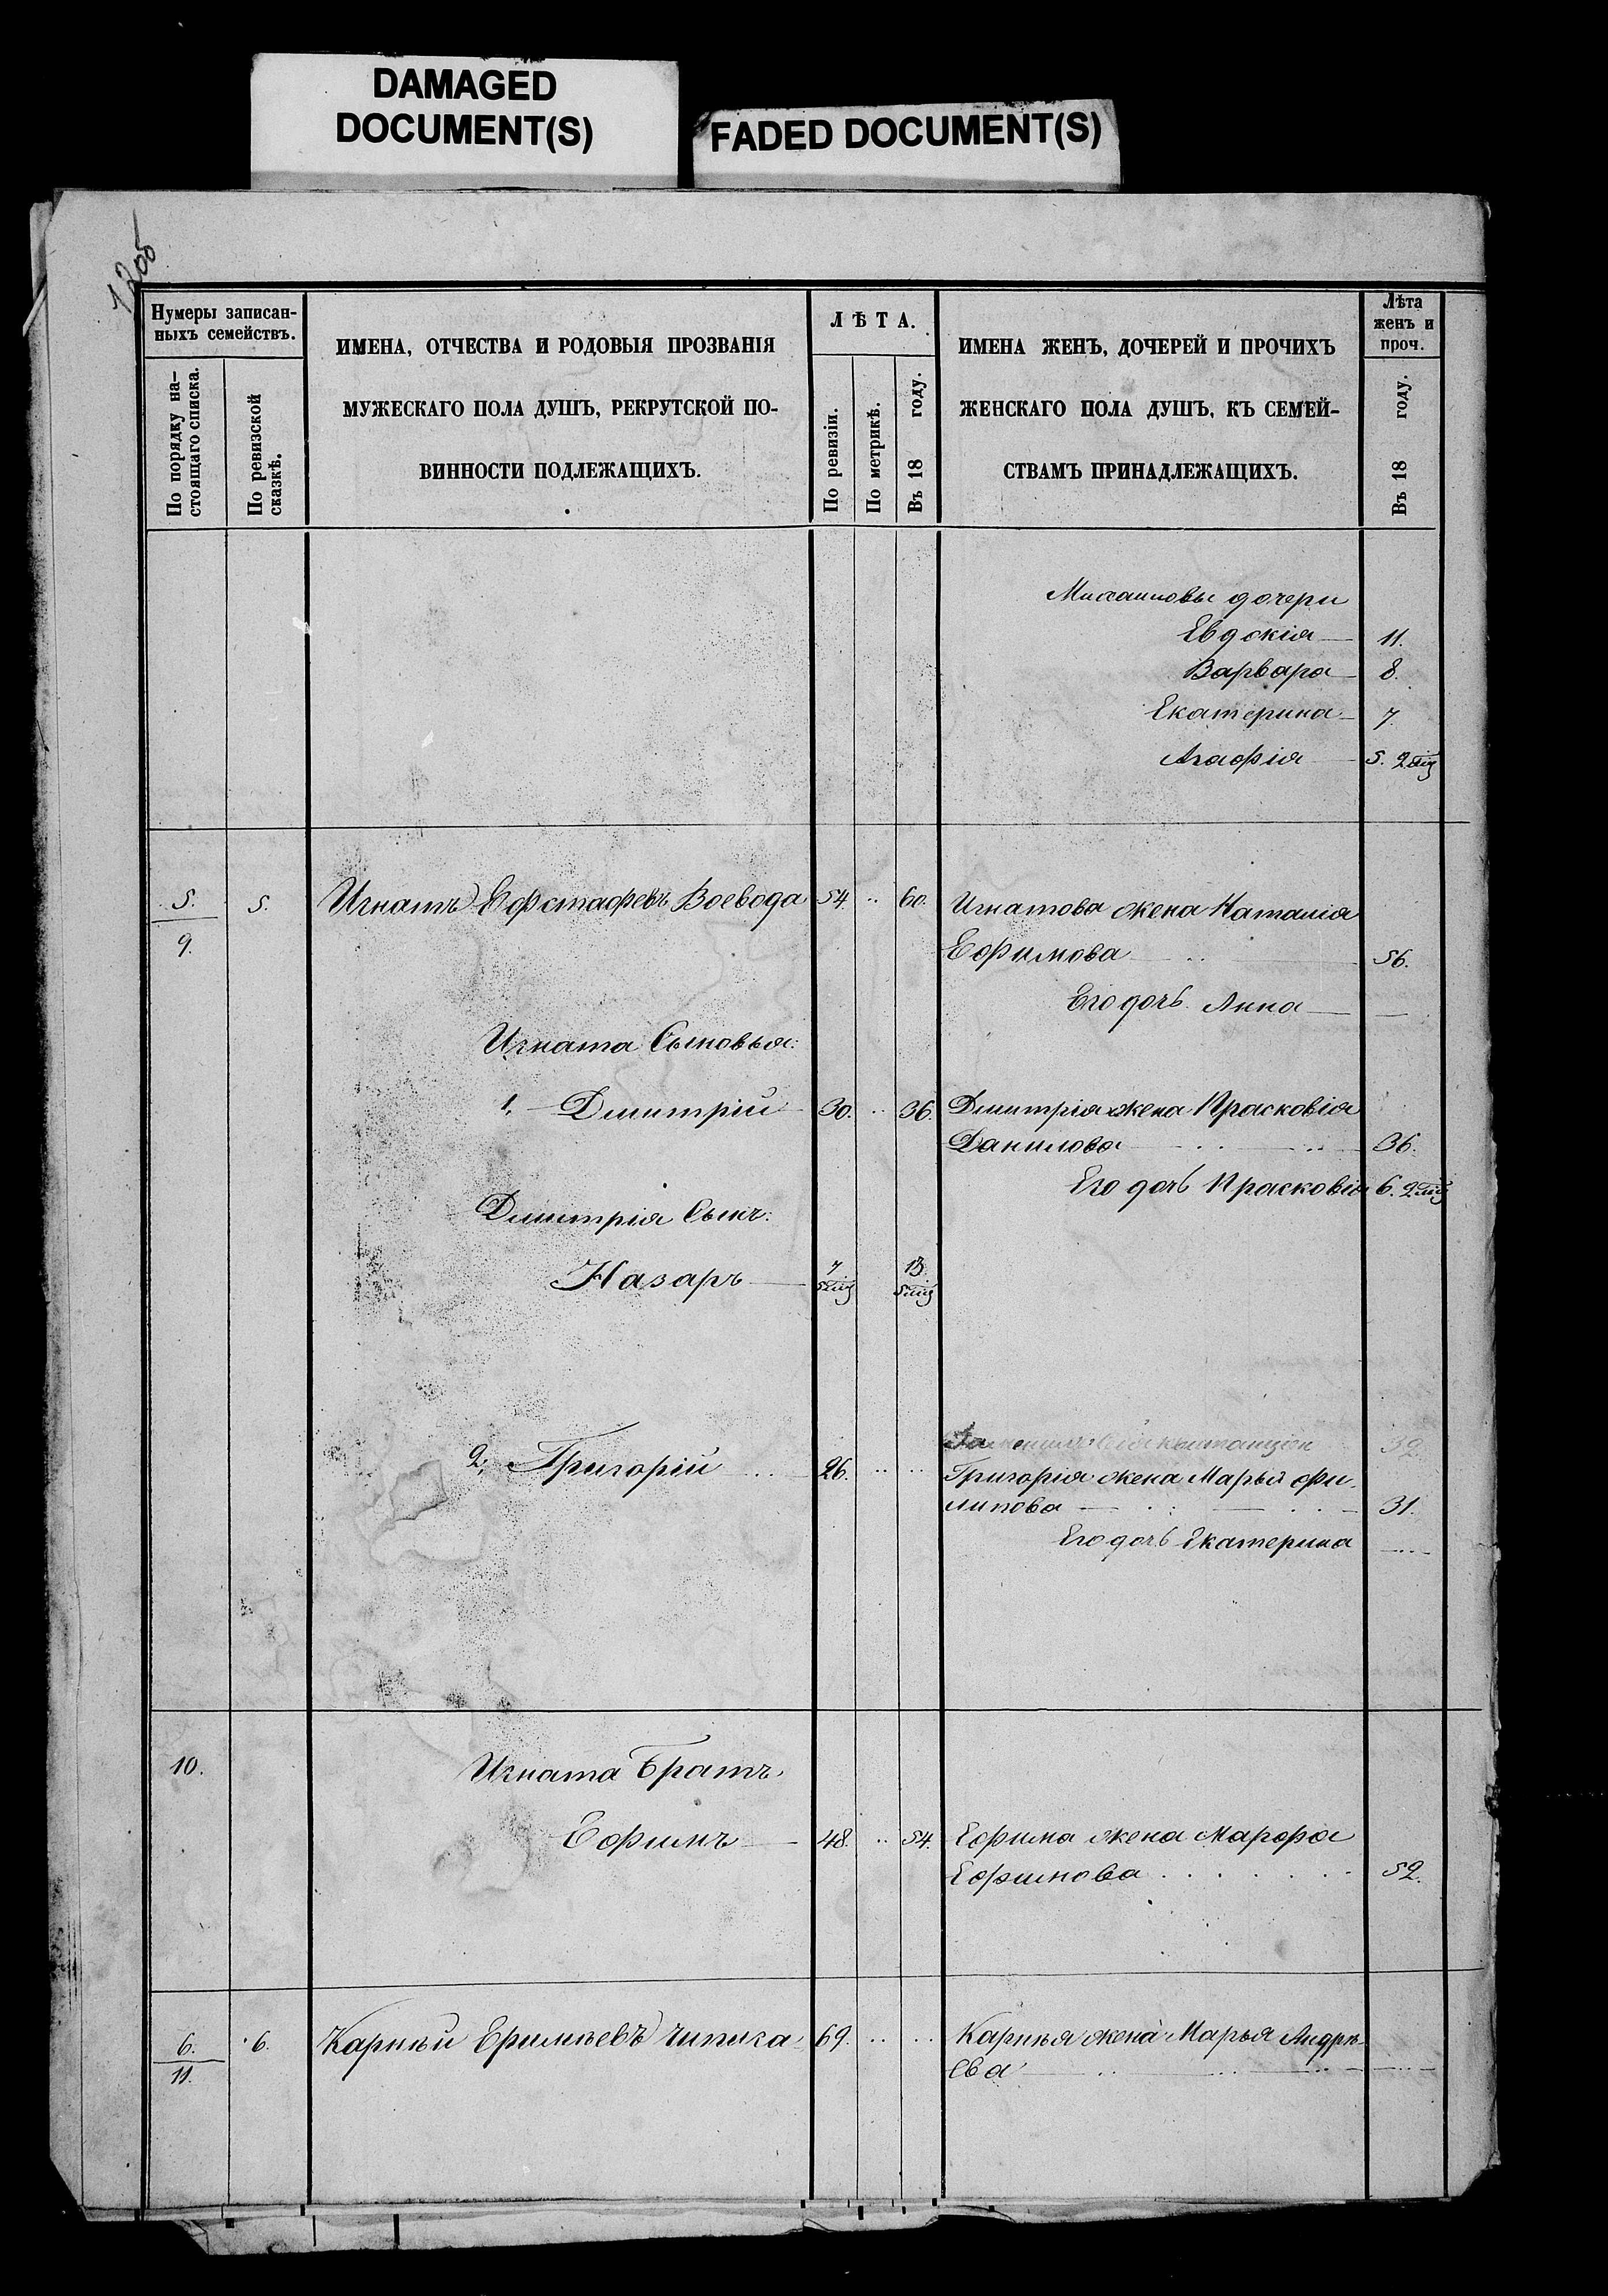 DAMAGED
DOCUMENT(S)
FADED DOCUMENT(S)
Нумеры записан-
ныхъ семействъ.
По порядку на-
стоящаго списка.
По ревизской
сказкѣ.
ИМЕНА, ОТЧЕСТВА И РОДОВЫЯ ПРОЗВАНІЯ
МУЖЕСКАГО ПОЛА ДУШЪ, РЕКРУТСКОЙ ПО-
ВИННОСТИ ПОДЛЕЖАЩИХЪ.
ЛѢТА.
По ревизіи.
По метрикѣ.
Въ 18 году.
ИМЕНА ЖЕНЪ, ДОЧЕРЕЙ И ПРОЧИХЪ
ЖЕНСКАГО ПОЛА ДУШЪ, КЪ СЕМЕЙ-
СТВАМЪ ПРИНАДЛЕЖАЩИХЪ.
Лѣта
женъ и
проч.
Въ 18 году.
дочери
Евдокія 11.
Варвара 8.
Екатерина 7.
Агафія 5. 2
5. 5. Игнатъ Ефстафевъ Воевода 54. 60. Игнатова жена Наталія
9. Ефимова 56.
Его дочь Анна
Игната Сыновья:
1, Димитрій 30. 36. Димитрія жена Прасковія
Данилова 36.
Его дочь Прасковія 6. 2
Димитрія Сынъ:
Назаръ 7 13
5 5
2, Григорій 26. Григорія жена Марья Фи-
липова 31.
Его дочь Екатерина
10. Игната Братъ,
Ефимъ 48. 54. Ефима жена Марфа
Ефимова 52.
6. 6. Карпѣй 69. Карпѣя жена Марья Андрѣ-
11. ева